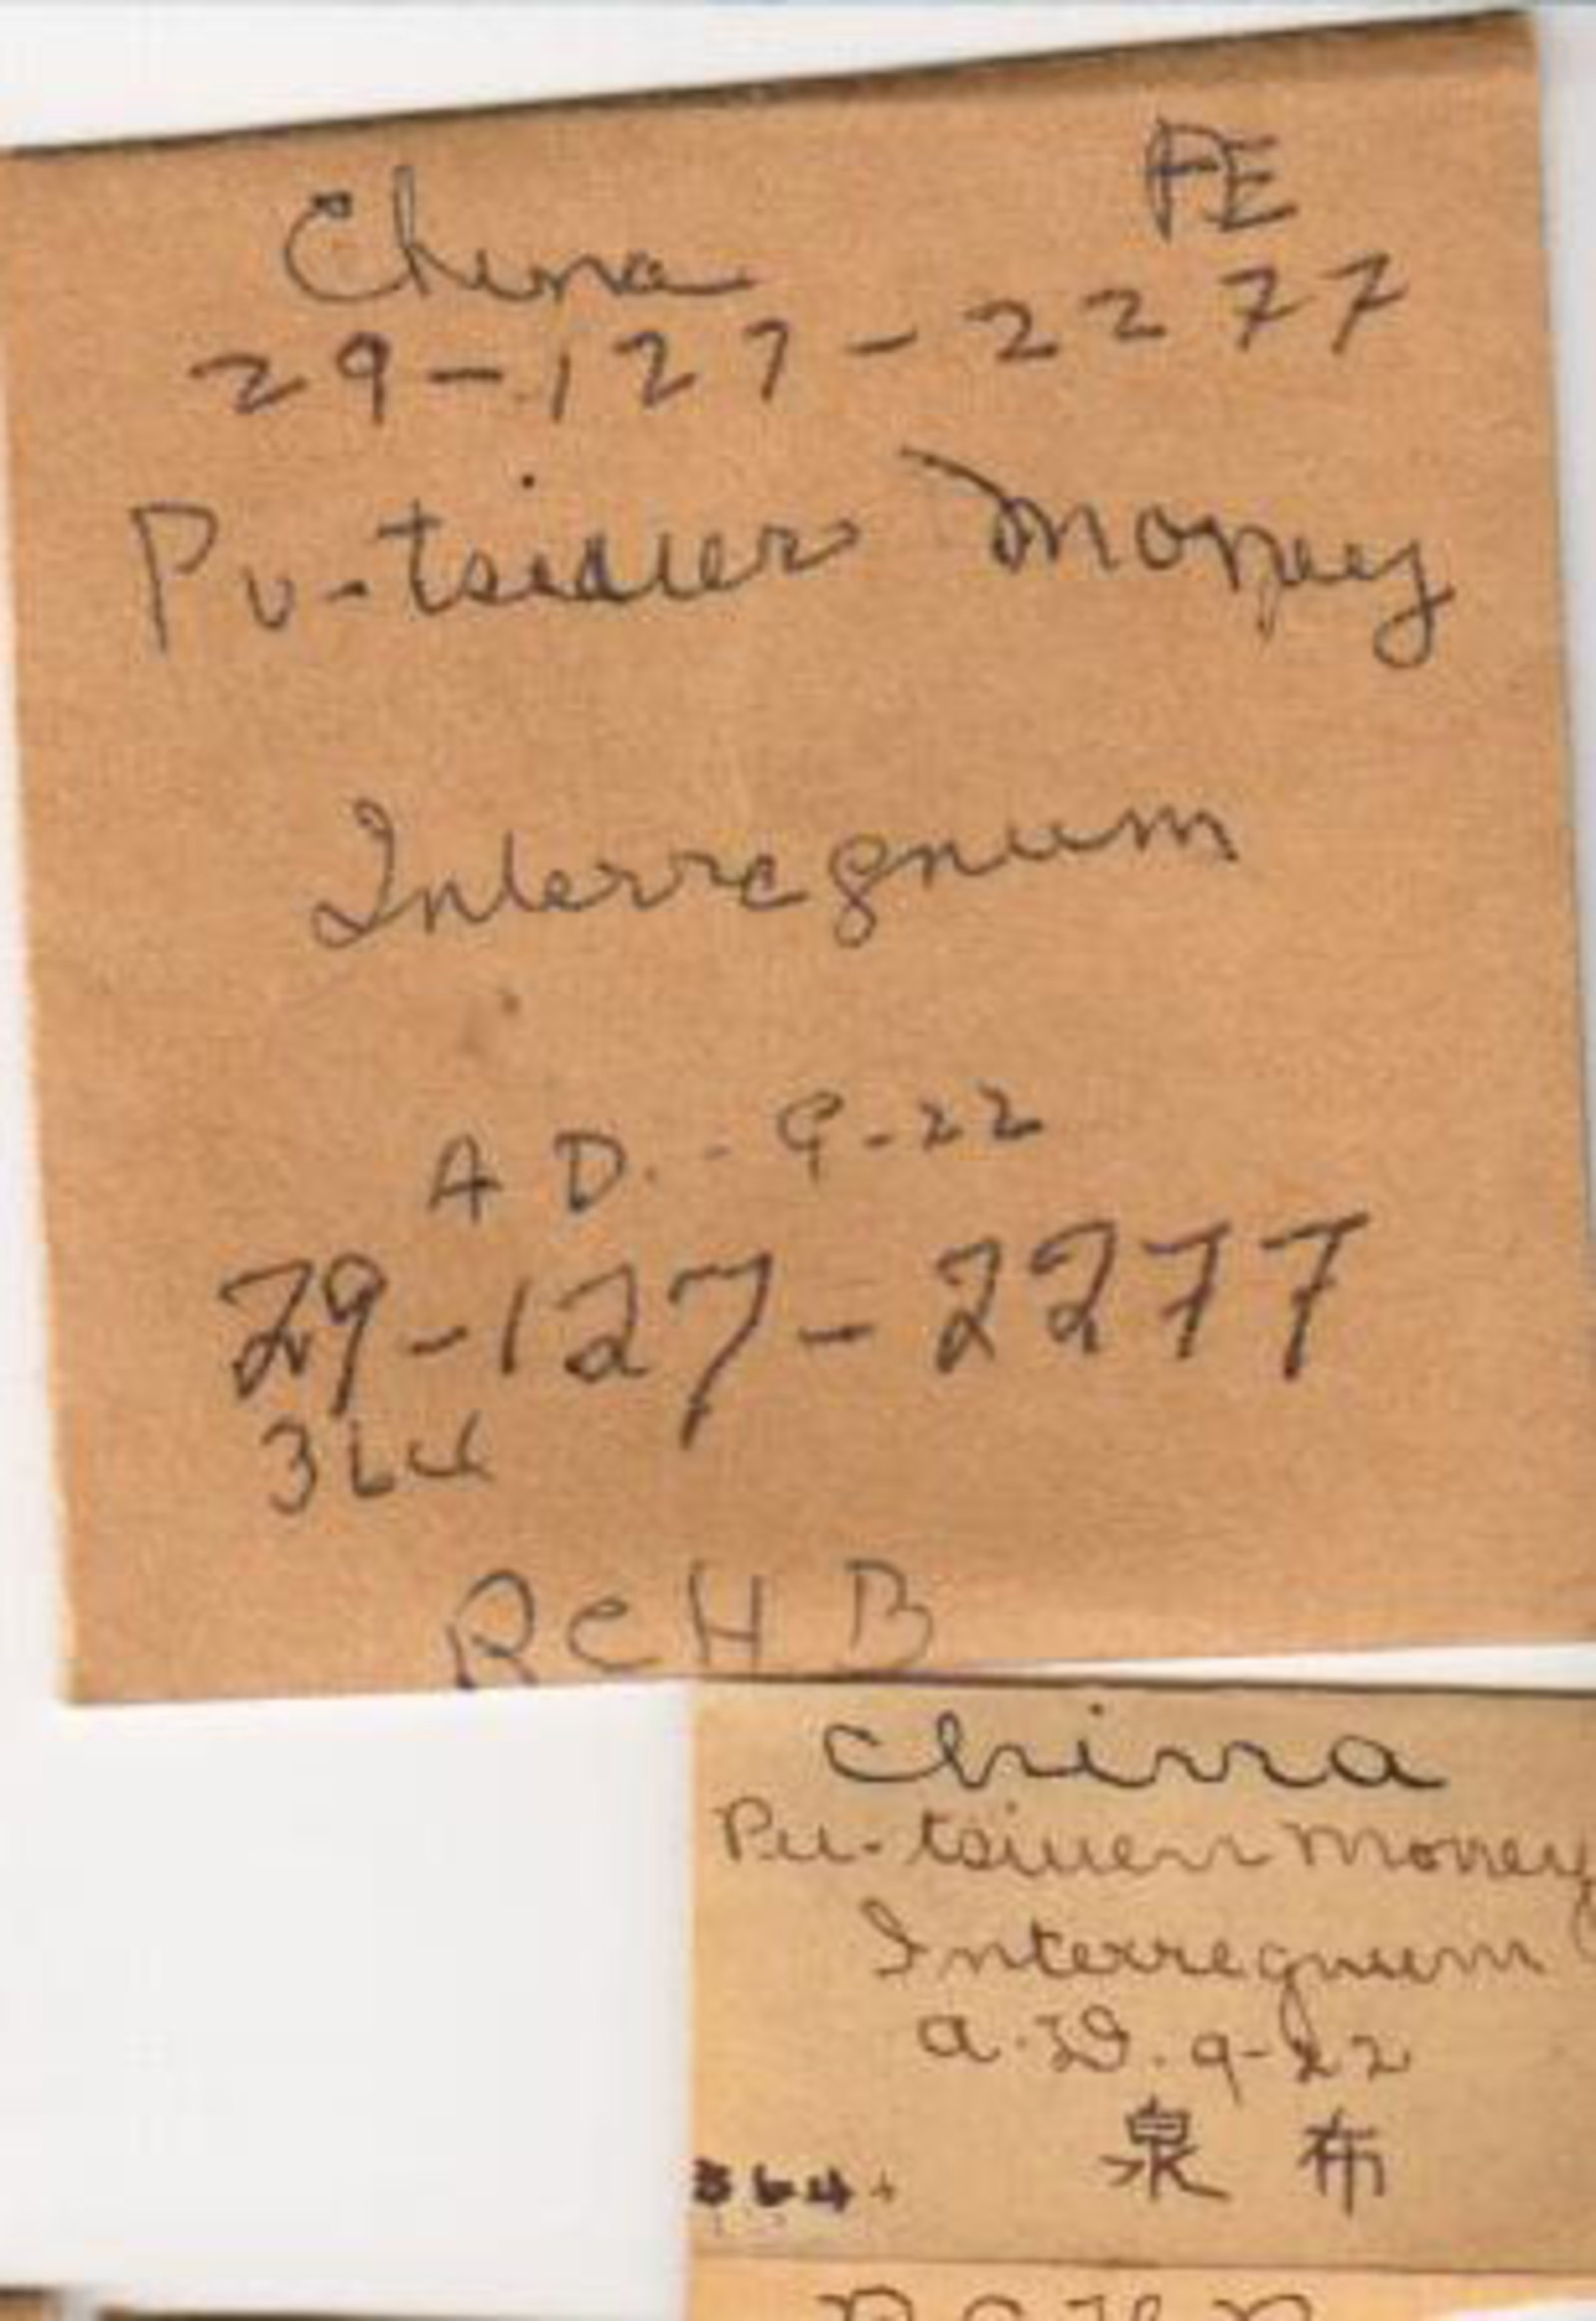 China FE
29-127-2277
Pu-tsiuen Money
Interregnum
A D. - 9-22
29-127-2277
364
RCHB
China
Pu-tsiuen Money
Interregnum
A.D. 9-22
泉 布
364
RCHB